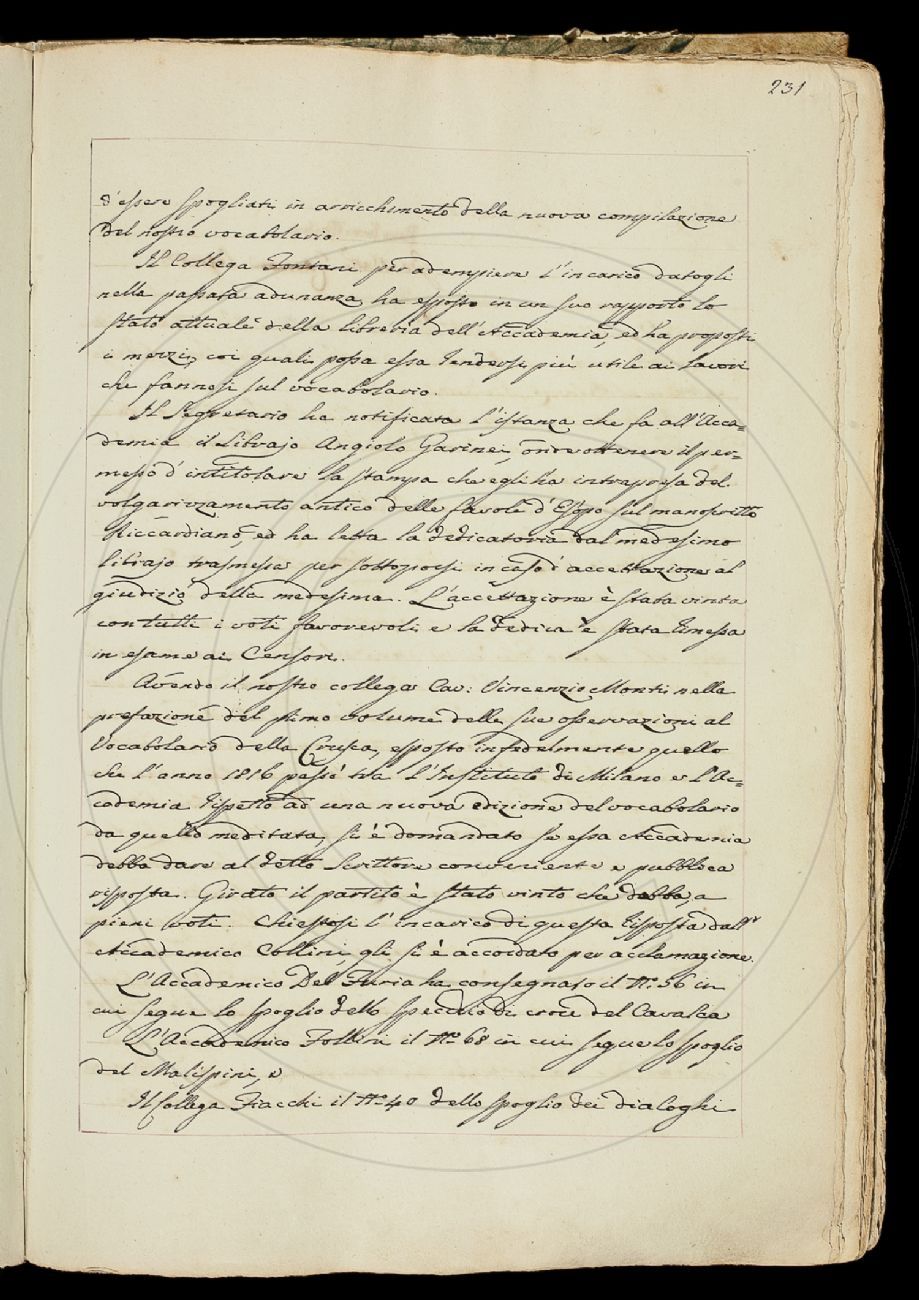 231
d'essere spogliati in arricchimento della nuova compilazione
del nostro vocabolario.
Il Collega Fontani per adempiere l'incarico datogli
nella passata adunanza ha esposto in un suo rapporto lo
stato attuale della libreria dell'Accademia, ed ha proposti
i mezzi, coi quali possa essa rendersi più utile ai lavori
che fannosi sul vocabolario.
Il Segretario ha notificata l'istanza che fa all'Acca=
demia il Librajo Angiolo Garinei, onde ottenere il per=
messo d'intitolare la stampa che egli ha intrapresa del
volgarizzamento antico delle favole d'Esopo sul manoscritto
Riccardiano, ed ha letta la dedicatoria dal medesimo
librajo trasmessa per sottoporsi in caso d'accettazione al
giudizio della medesima. L'accettazione è stata vinta
con tutti i voti favorevoli e la dedica è stata rimessa
in esame ai Censori.
Avendo il nostro collega Cav: Vincenzio Monti nella
prefazione del primo volume delle sue osservazioni al
Vocabolario della Crusca, esposto infedelmente quello
che l'anno 1816 passò tra l'Instituto di Milano e l'Ac=
cademia rispetto ad una nuova edizione del vocabolario
da quello meditata, si è domandato se essa Accademia
debba dare al detto Scrittore conveniente e pubblica
risposta. Girato il partito è stato vinto che debba, a
pieni voti. Chiestosi l'incarico di questa risposta dall'
Accademico Collini, gli si è accordato per acclamazione.
L'Accademico Del Furia ha consegnato il N.º 56 in
cui segue lo spoglio dello Specchio di croce del Cavalca
L'Accademico Follini il N.º 68 in cui segue lo spoglio
del Malispini, e
Il Collega Fiacchi il N.º 40 dello spoglio dei dialoghi